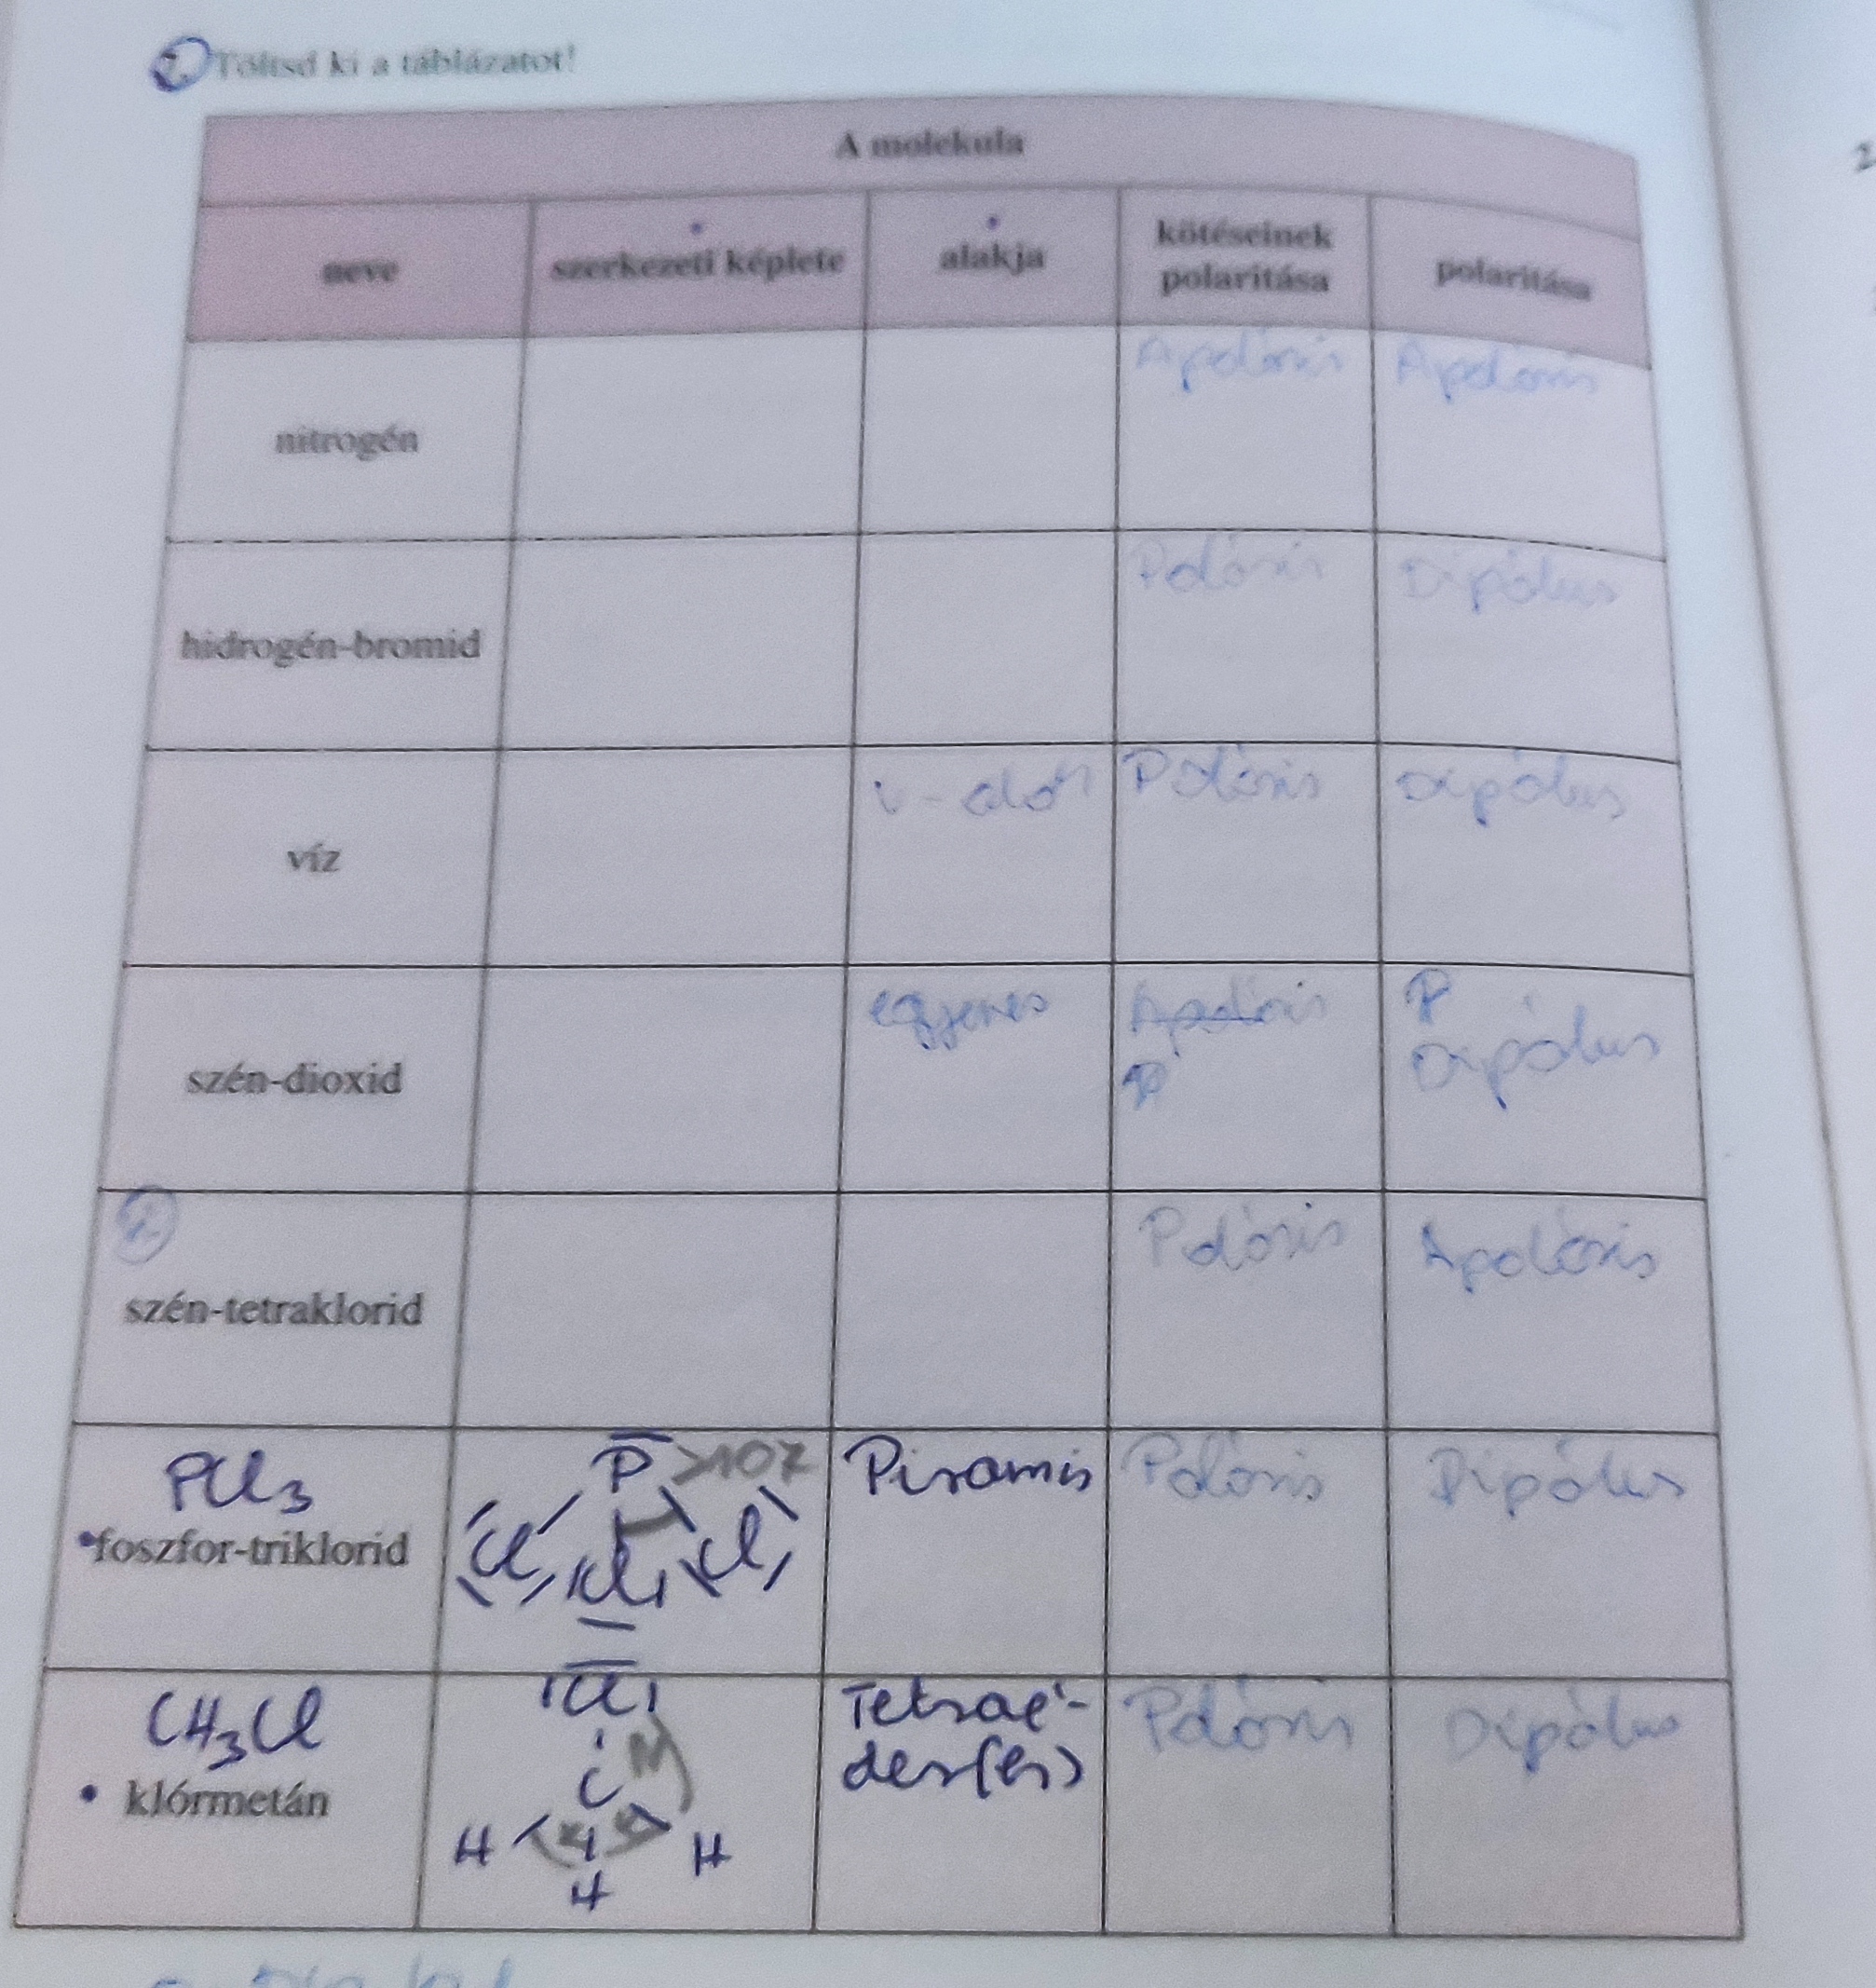 Töltsd ki a táblázatot!
A molekula
neve
szerkezeti képlete
alakja
kötéseinek
polaritása
polaritása
nitrogén
Apoláris
Apoláris
hidrogén-bromid
Poláris
Dipólus
víz
V-alak
Poláris
Dipólus
szén-dioxid
egyenes
Apoláris
P
P
Dipólus
szén-tetraklorid
Poláris
Apoláris
PCl3
foszfor-triklorid
P >107
Cl Cl Cl
Piramis
Poláris
Dipólus
CH3Cl
klórmetán
Cl
C
H H
H
Tetraé-
der(es)
Poláris
Dipólus
2